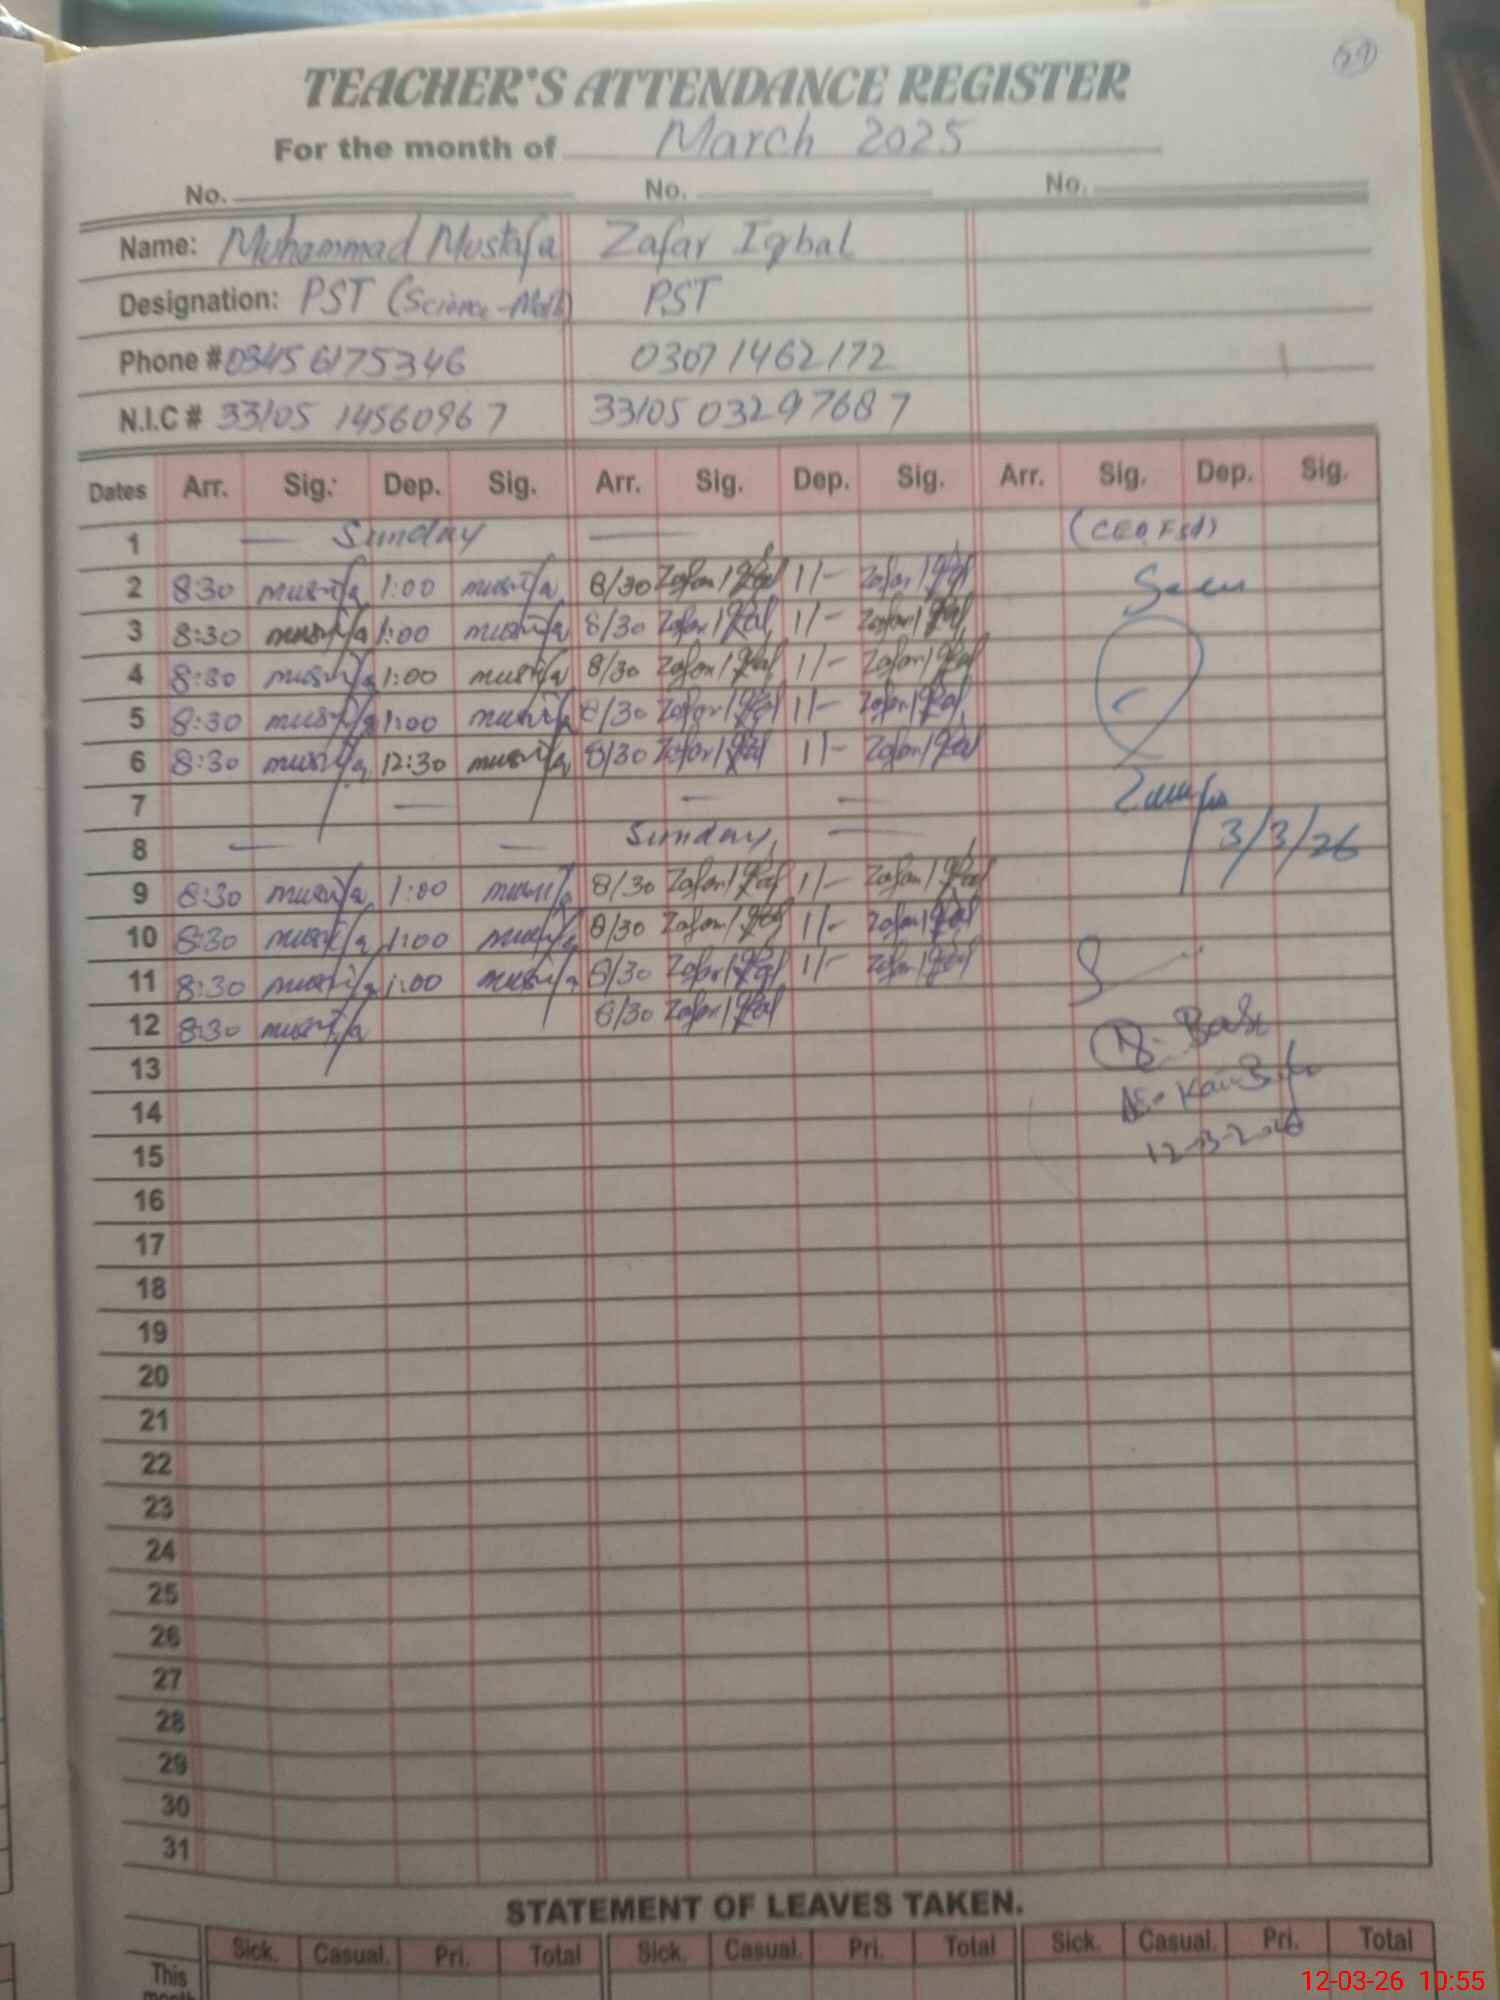 59
TEACHER'S ATTENDANCE REGISTER
For the month of March 2025
No. No. No.
Name: Muhammad Mustafa Zafar Iqbal
Designation: PST (Science-Math) PST
Phone # 03456175346 03071462172
N.I.C # 33105 14560967 33105 03297687
Dates Arr. Sig. Dep. Sig. Arr. Sig. Dep. Sig. Arr. Sig. Dep. Sig.
1 — Sunday — (CEO Fsd)
2 8:30 mustafa 1:00 mustafa 8/30 Zafar Iqbal 1/- Zafar Iqbal Seen
3 8:30 mustafa 1:00 mustafa 8/30 Zafar Iqbal 1/- Zafar Iqbal
4 8:30 mustafa 1:00 mustafa 8/30 Zafar Iqbal 1/- Zafar Iqbal
5 8:30 mustafa 1:00 mustafa 8/30 Zafar Iqbal 1/- Zafar Iqbal
6 8:30 mustafa 12:30 mustafa 8/30 Zafar Iqbal 1/- Zafar Iqbal
7 — — —
8 — — Sunday — 3/3/26
9 8:30 mustafa 1:00 mustafa 8/30 Zafar Iqbal 1/- Zafar Iqbal
10 8:30 mustafa 1:00 mustafa 8/30 Zafar Iqbal 1/- Zafar Iqbal
11 8:30 mustafa 1:00 mustafa 8/30 Zafar Iqbal 1/- Zafar Iqbal
12 8:30 mustafa 8/30 Zafar Iqbal
13
14
15 12-03-2026
16
17
18
19
20
21
22
23
24
25
26
27
28
29
30
31
STATEMENT OF LEAVES TAKEN.
Sick. Casual. Pri. Total Sick. Casual. Pri. Total Sick. Casual. Pri. Total
This
month
12-03-26 10:55